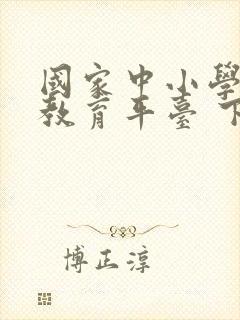 國家中小學
教育平臺 下
博正淳